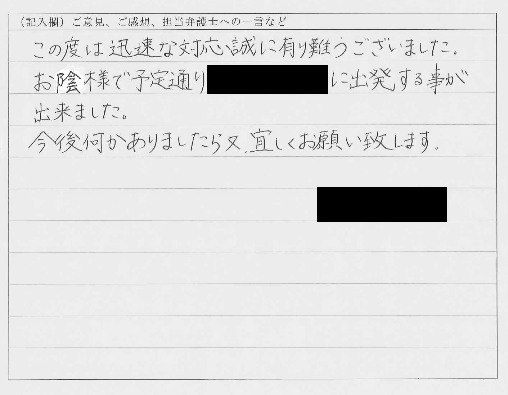 (記入欄) ご意見、ご感想、担当弁護士への一言など
この度は迅速な対応誠に有り難うございました。
お陰様で予定通り に出発する事が
出来ました。
今後何かありましたら又、宜しくお願い致します。